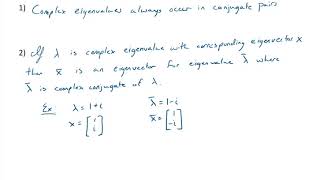 1) Complex eigenvalues always occur in conjugate pairs
2) If λ is complex eigenvalue with corresponding eigenvector x
then x̄ is an eigenvector for eigenvalue λ̄ where
λ̄ is complex conjugate of λ.
Ex λ = 1+i λ̄ = 1-i
x = [1 i] x̄ = [1 -i]